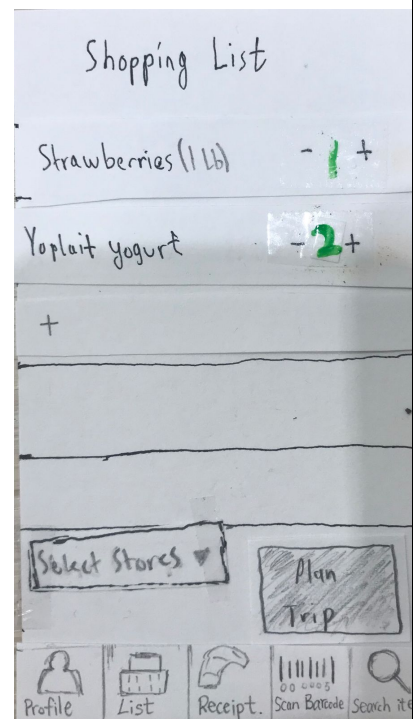 Shopping List
Strawberries (1 Lb) - 1 +
Yoplait yogurt - 2 +
+
Select Stores ▼
Plan
Trip
Profile List Receipt. Scan Barcode Search ite